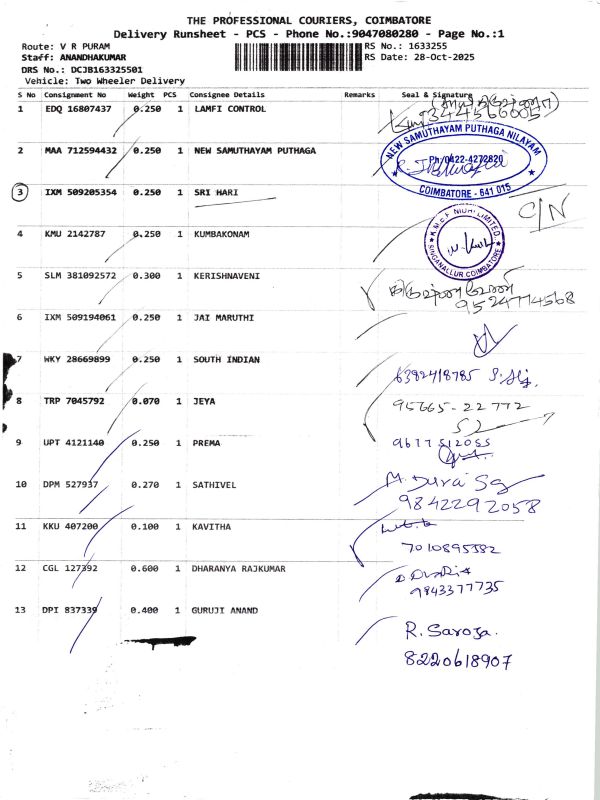 THE PROFESSIONAL COURIERS, COIMBATORE
Delivery Runsheet - PCS - Phone No.:9047080280 - Page No.:1
Route: V R PURAM
RS No.: 1633255
Staff: ANANDHAKUMAR
RS Date: 28-Oct-2025
DRS No.: DCJB163325501
Vehicle: Two Wheeler Delivery
S No Consignment No Weight PCS Consignee Details Remarks Seal & Signature
1 EDQ 16807437 0.250 1 LAMFI CONTROL
2 MAA 712594432 0.250 1 NEW SAMUTHAYAM PUTHAGA
NEW SAMUTHAYAM PUTHAGA NILAYAM
Ph:0422-4272820
COIMBATORE - 641 015
3 IXM 509205354 0.250 1 SRI HARI C/N
4 KMU 2142787 0.250 1 KUMBAKONAM
SINGANALLUR COIMBATORE
5 SLM 381092572 0.300 1 KERISHNAVENI
9524774568
6 IXM 509194061 0.250 1 JAI MARUTHI
7 WKY 28669899 0.250 1 SOUTH INDIAN
6382418785
8 TRP 7045792 0.070 1 JEYA 95665-22772
9 UPT 4121140 0.250 1 PREMA 9677512055
10 DPM 527937 0.270 1 SATHIVEL
9842292058
11 KKU 407200 0.100 1 KAVITHA
7010895382
12 CGL 127392 0.600 1 DHARANYA RAJKUMAR
9843377735
13 DPI 837339 0.400 1 GURUJI ANAND
R. Saroja.
8220618907